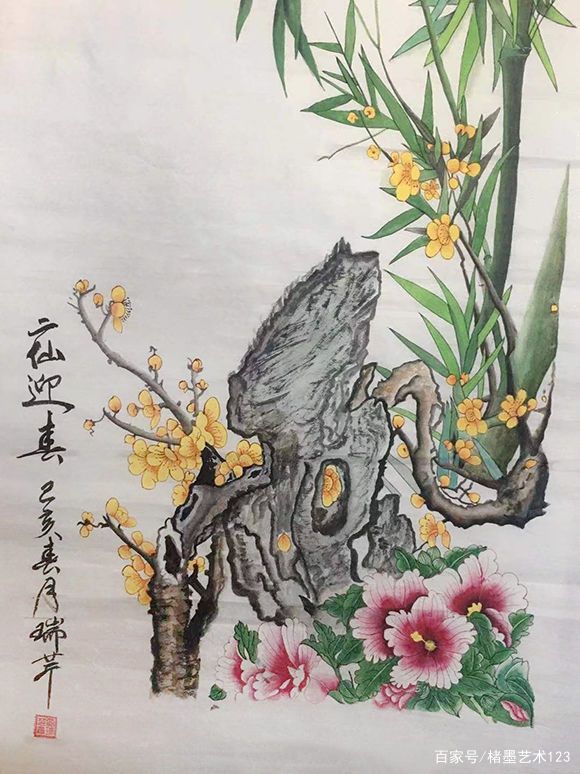 二仙迎春 己亥春月瑞芹
百家号/楮墨艺术123